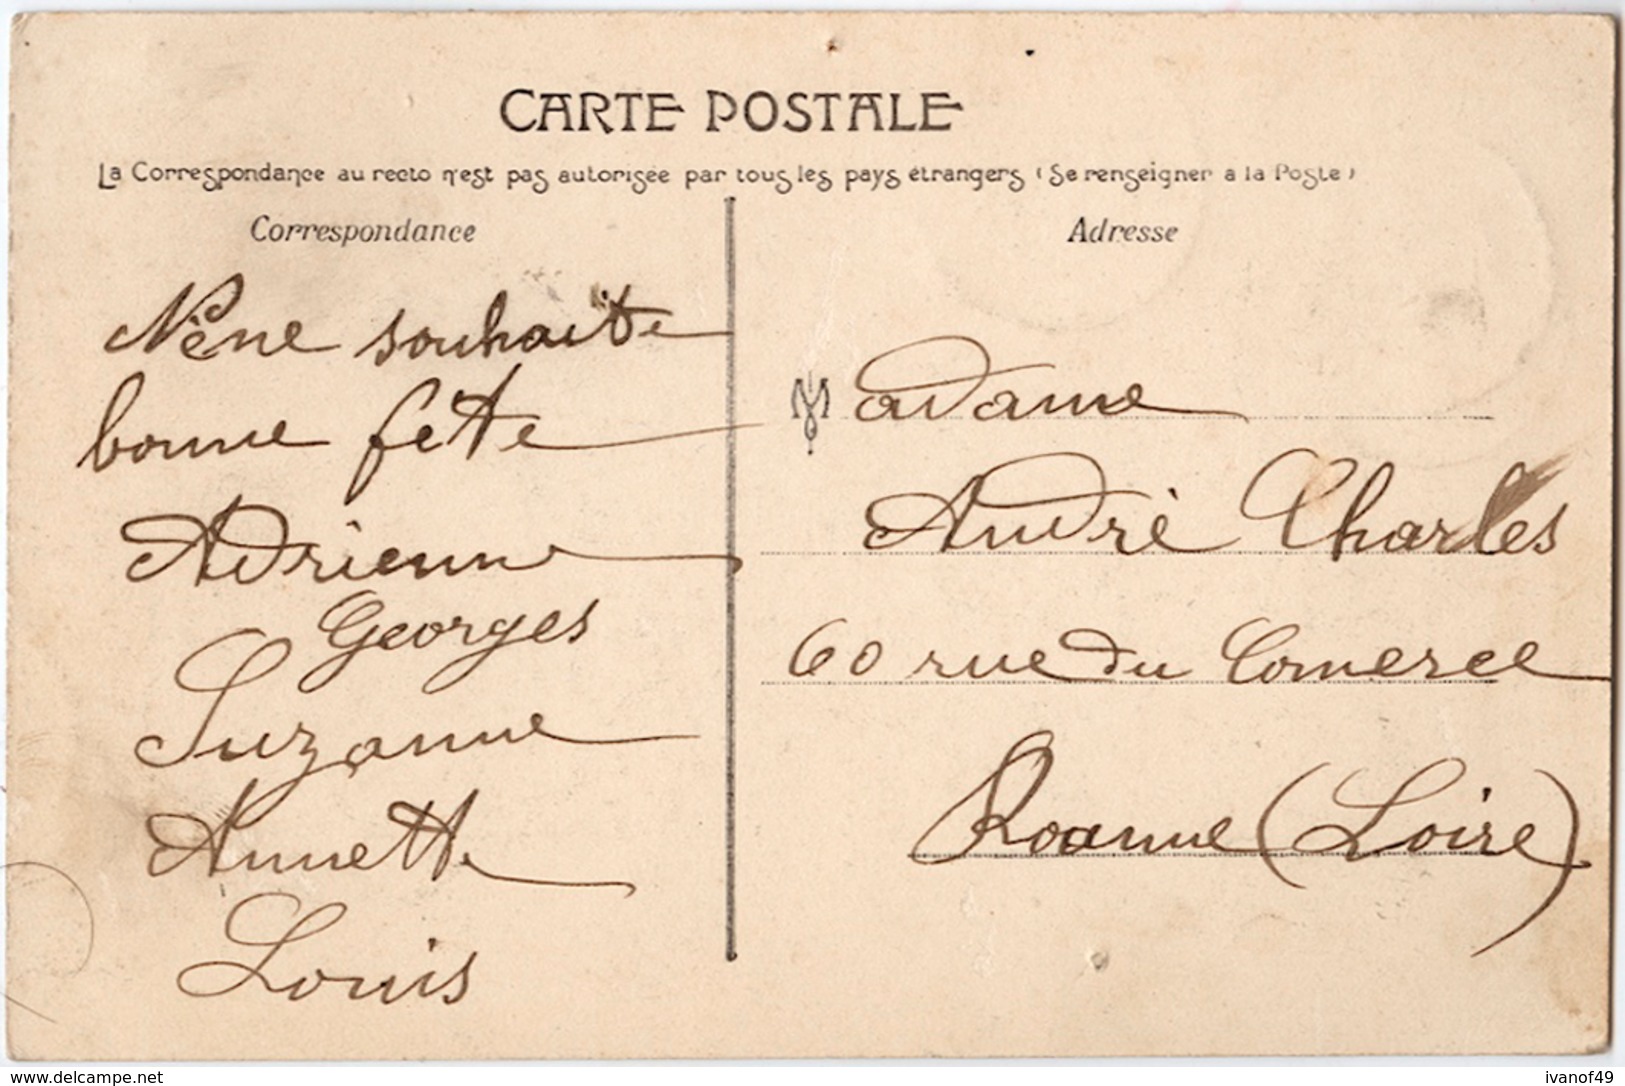 CARTE POSTALE
La Correspondance au recto n'est pas autorisée par tous les pays étrangers (Se renseigner a la Poste)
Correspondance
Nène souhaite
bonne fête
Adrienne
Georges
Suzanne
Annette
Louis
Adresse
Madame
André Charles
60 rue du Comerce
Roanne (Loire)
www.delcampe.net
ivanof49